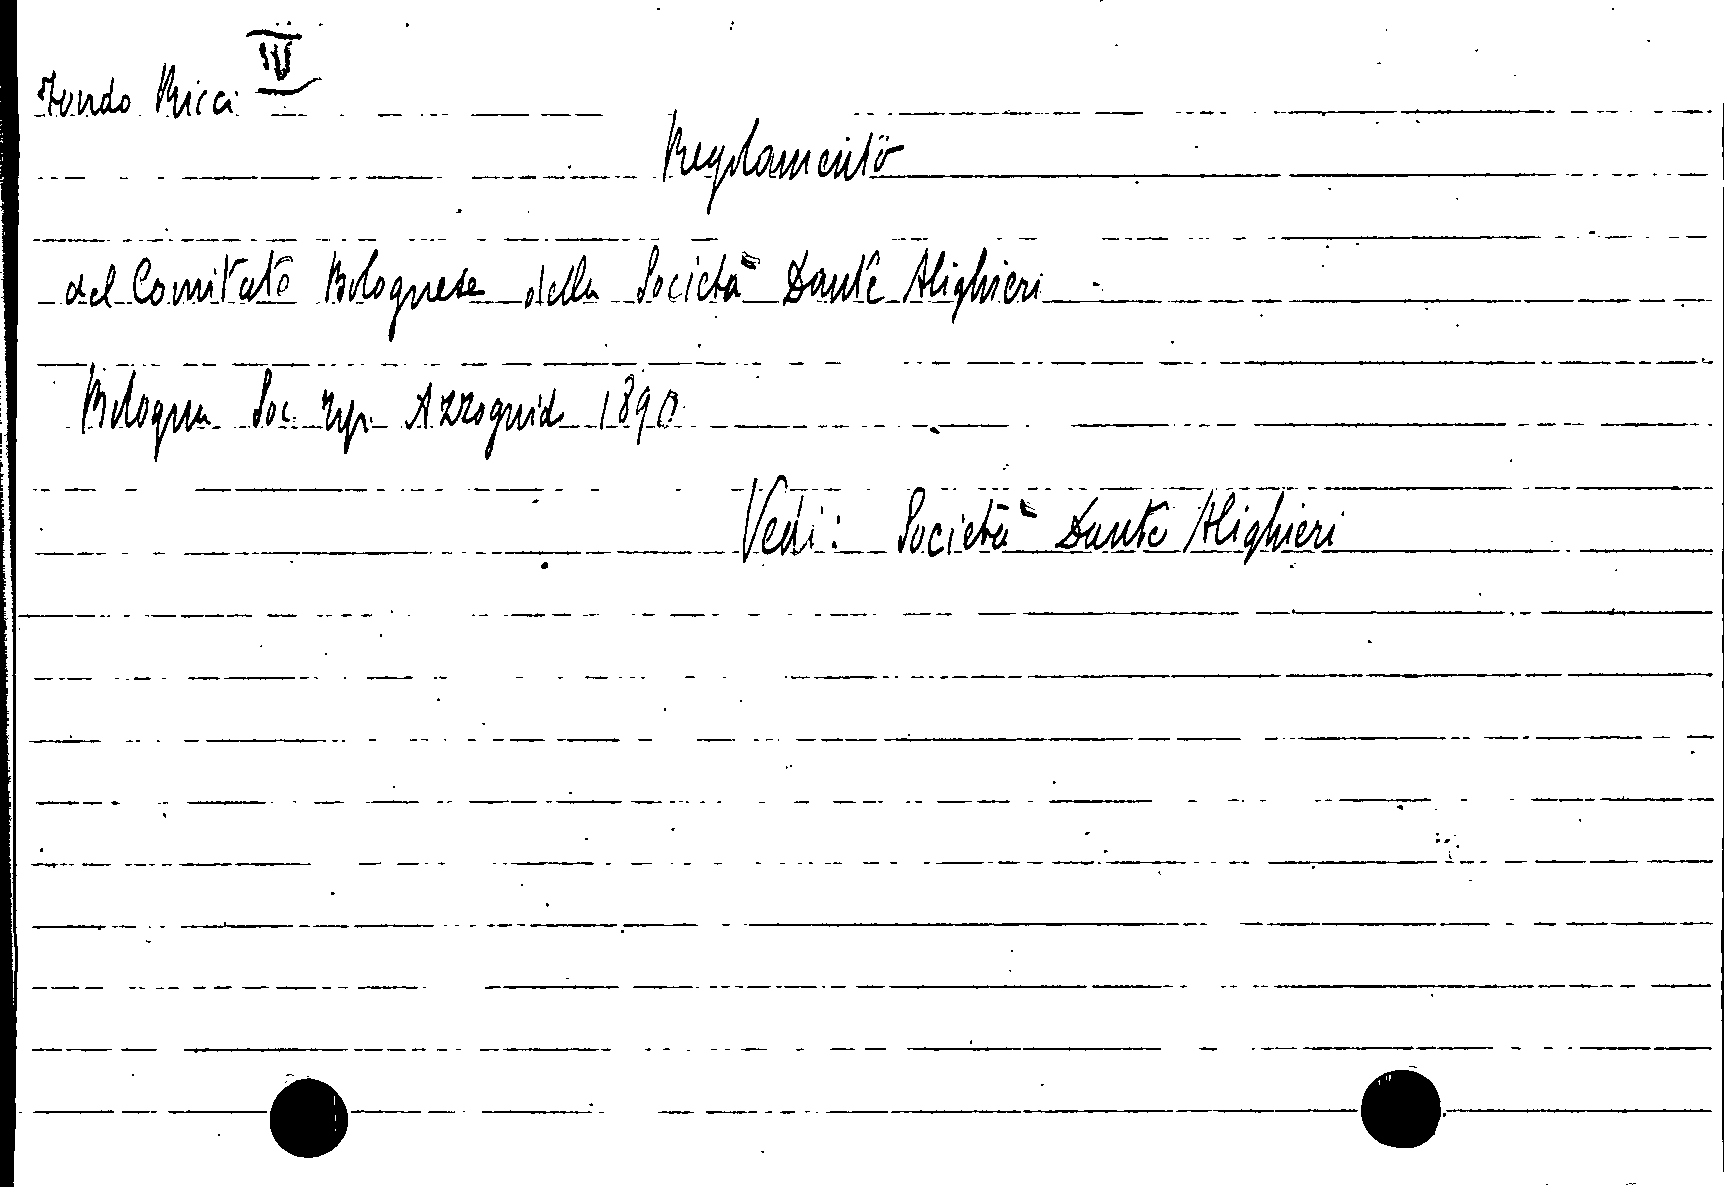 Fondo Ricci IV
Regolamento
del Comitato Bolognese della Società Dante Alighieri
Bologna Soc. Tip. Azzoguidi 1890
Vedi: Società Dante Alighieri